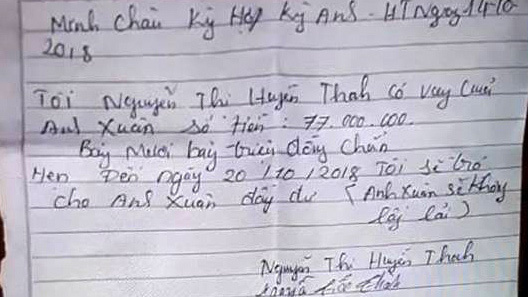 Minh Châu Kỳ Hợp Kỳ Anh - HT Ngày 14-10
2018
Tôi Nguyễn Thị Huyền Thanh có vay của
Anh Xuân số tiền : 77.000.000.
Bảy Mươi bảy triệu đồng chẵn
Hẹn Đến ngày 20/10/2018 Tôi sẽ trả
cho Anh Xuân đầy đủ (Anh Xuân sẽ không
lấy lãi)
Nguyễn Thị Huyền Thanh